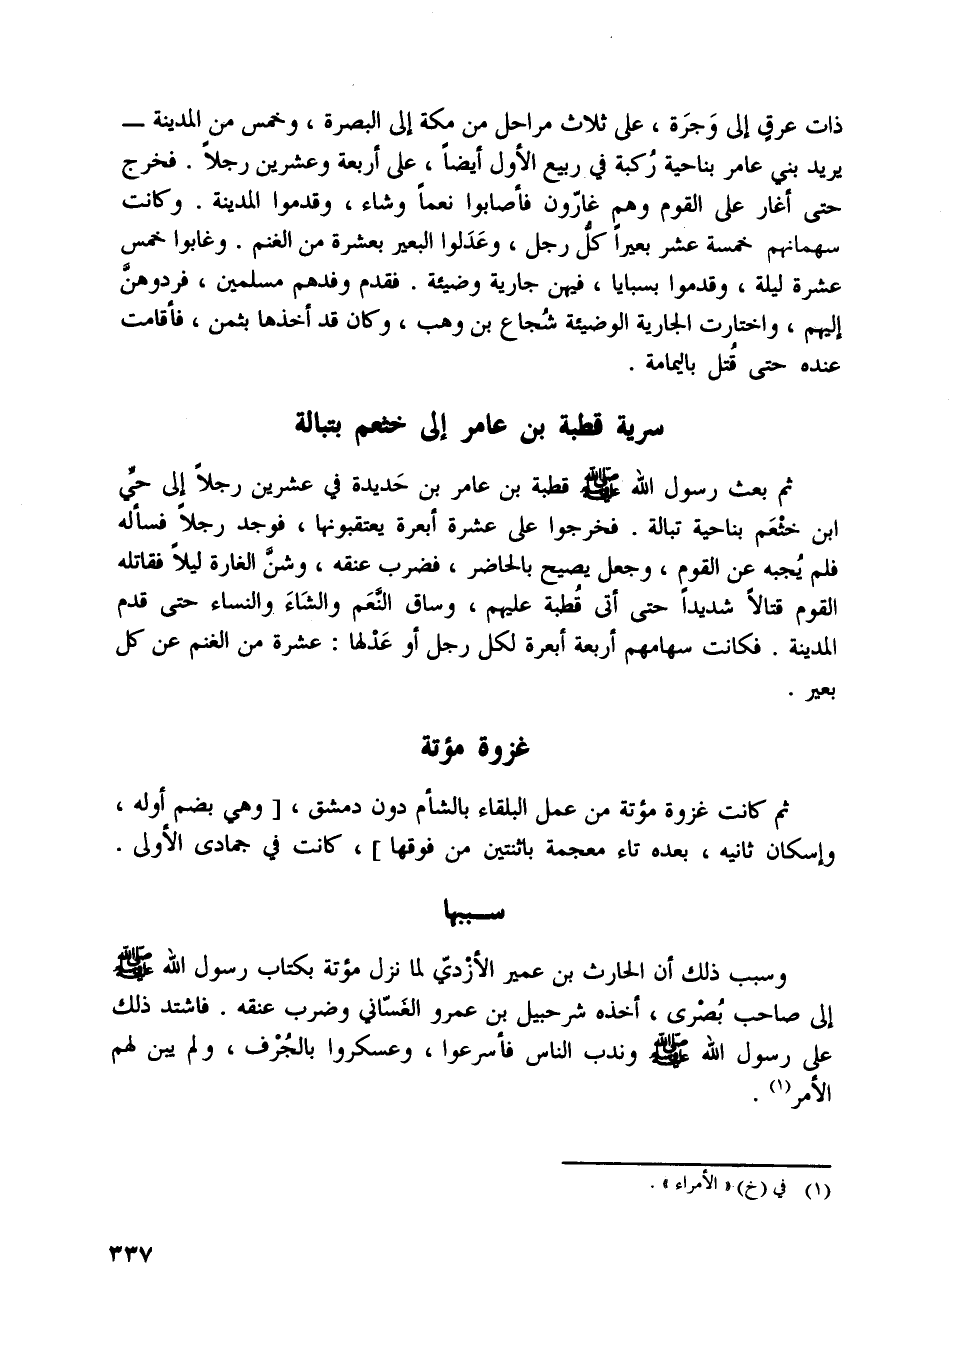 ذات عرقٍ إلى وَجرَة ، على ثلاث مراحل من مكة إلى البصرة ، وخمس من المدينة ــ
يريد بني عامر بناحية رُكبة في ربيع الأول أيضاً ، على أربعة وعشرين رجلاً . فخرج
حتى أغار على القوم وهم غارّون فأصابوا نعماً وشاء ، وقدموا المدينة . وكانت
سهمانهم خمسة عشر بعيراً كلُّ رجل ، وعَدَلوا البعير بعشرة من الغنم . وغابوا خمس
عشرة ليلة ، وقدموا بسبايا ، فيهن جارية وضيئة . فقدم وفدهم مسلمين ، فردوهنَّ
إليهم ، واختارت الجارية الوضيئة شُجاع بن وهب ، وكان قد أخذها بثمن ، فأقامت
عنده حتى قُتل باليمامة .
سرية قطبة بن عامر إلى خثعم بتبالة
ثم بعث رسول الله ﷺ قطبة بن عامر بن حَديدة في عشرين رجلاً إلى حيِّ
ابن خثْعَم بناحية تبالة . فخرجوا على عشرة أبعرة يعتقبونها ، فوجد رجلاً فسأله
فلم يُجبه عن القوم ، وجعل يصيح بالحاضر ، فضرب عنقه ، وشنَّ الغارة ليلاً فقاتله
القوم قتالاً شديداً حتى أتى قُطبة عليهم ، وساق النَّعَم والشاءَ والنساء حتى قدم
المدينة . فكانت سهامهم أربعة أبعرة لكل رجل أو عَدْلها : عشرة من الغنم عن كل
بعير .
غزوة مؤتة
ثم كانت غزوة مؤتة من عمل البلقاء بالشأم دون دمشق ، [ وهي بضم أوله ،
وإسكان ثانيه ، بعده تاء معجمة باثنتين من فوقها ] ، كانت في جمادى الأولى .
ســـببها
وسبب ذلك أن الحارث بن عمير الأزْديّ لما نزل مؤتة بكتاب رسول الله ﷺ
إلى صاحب بُصْرى ، أخذه شرحبيل بن عمرو الغَسّاني وضرب عنقه . فاشتد ذلك
على رسول الله ﷺ وندب الناس فأسرعوا ، وعسكروا بالجُرْف ، ولم يبن لهم
الأمر(١) .
(١) في (خ) « الأمراء » .
٣٣٧